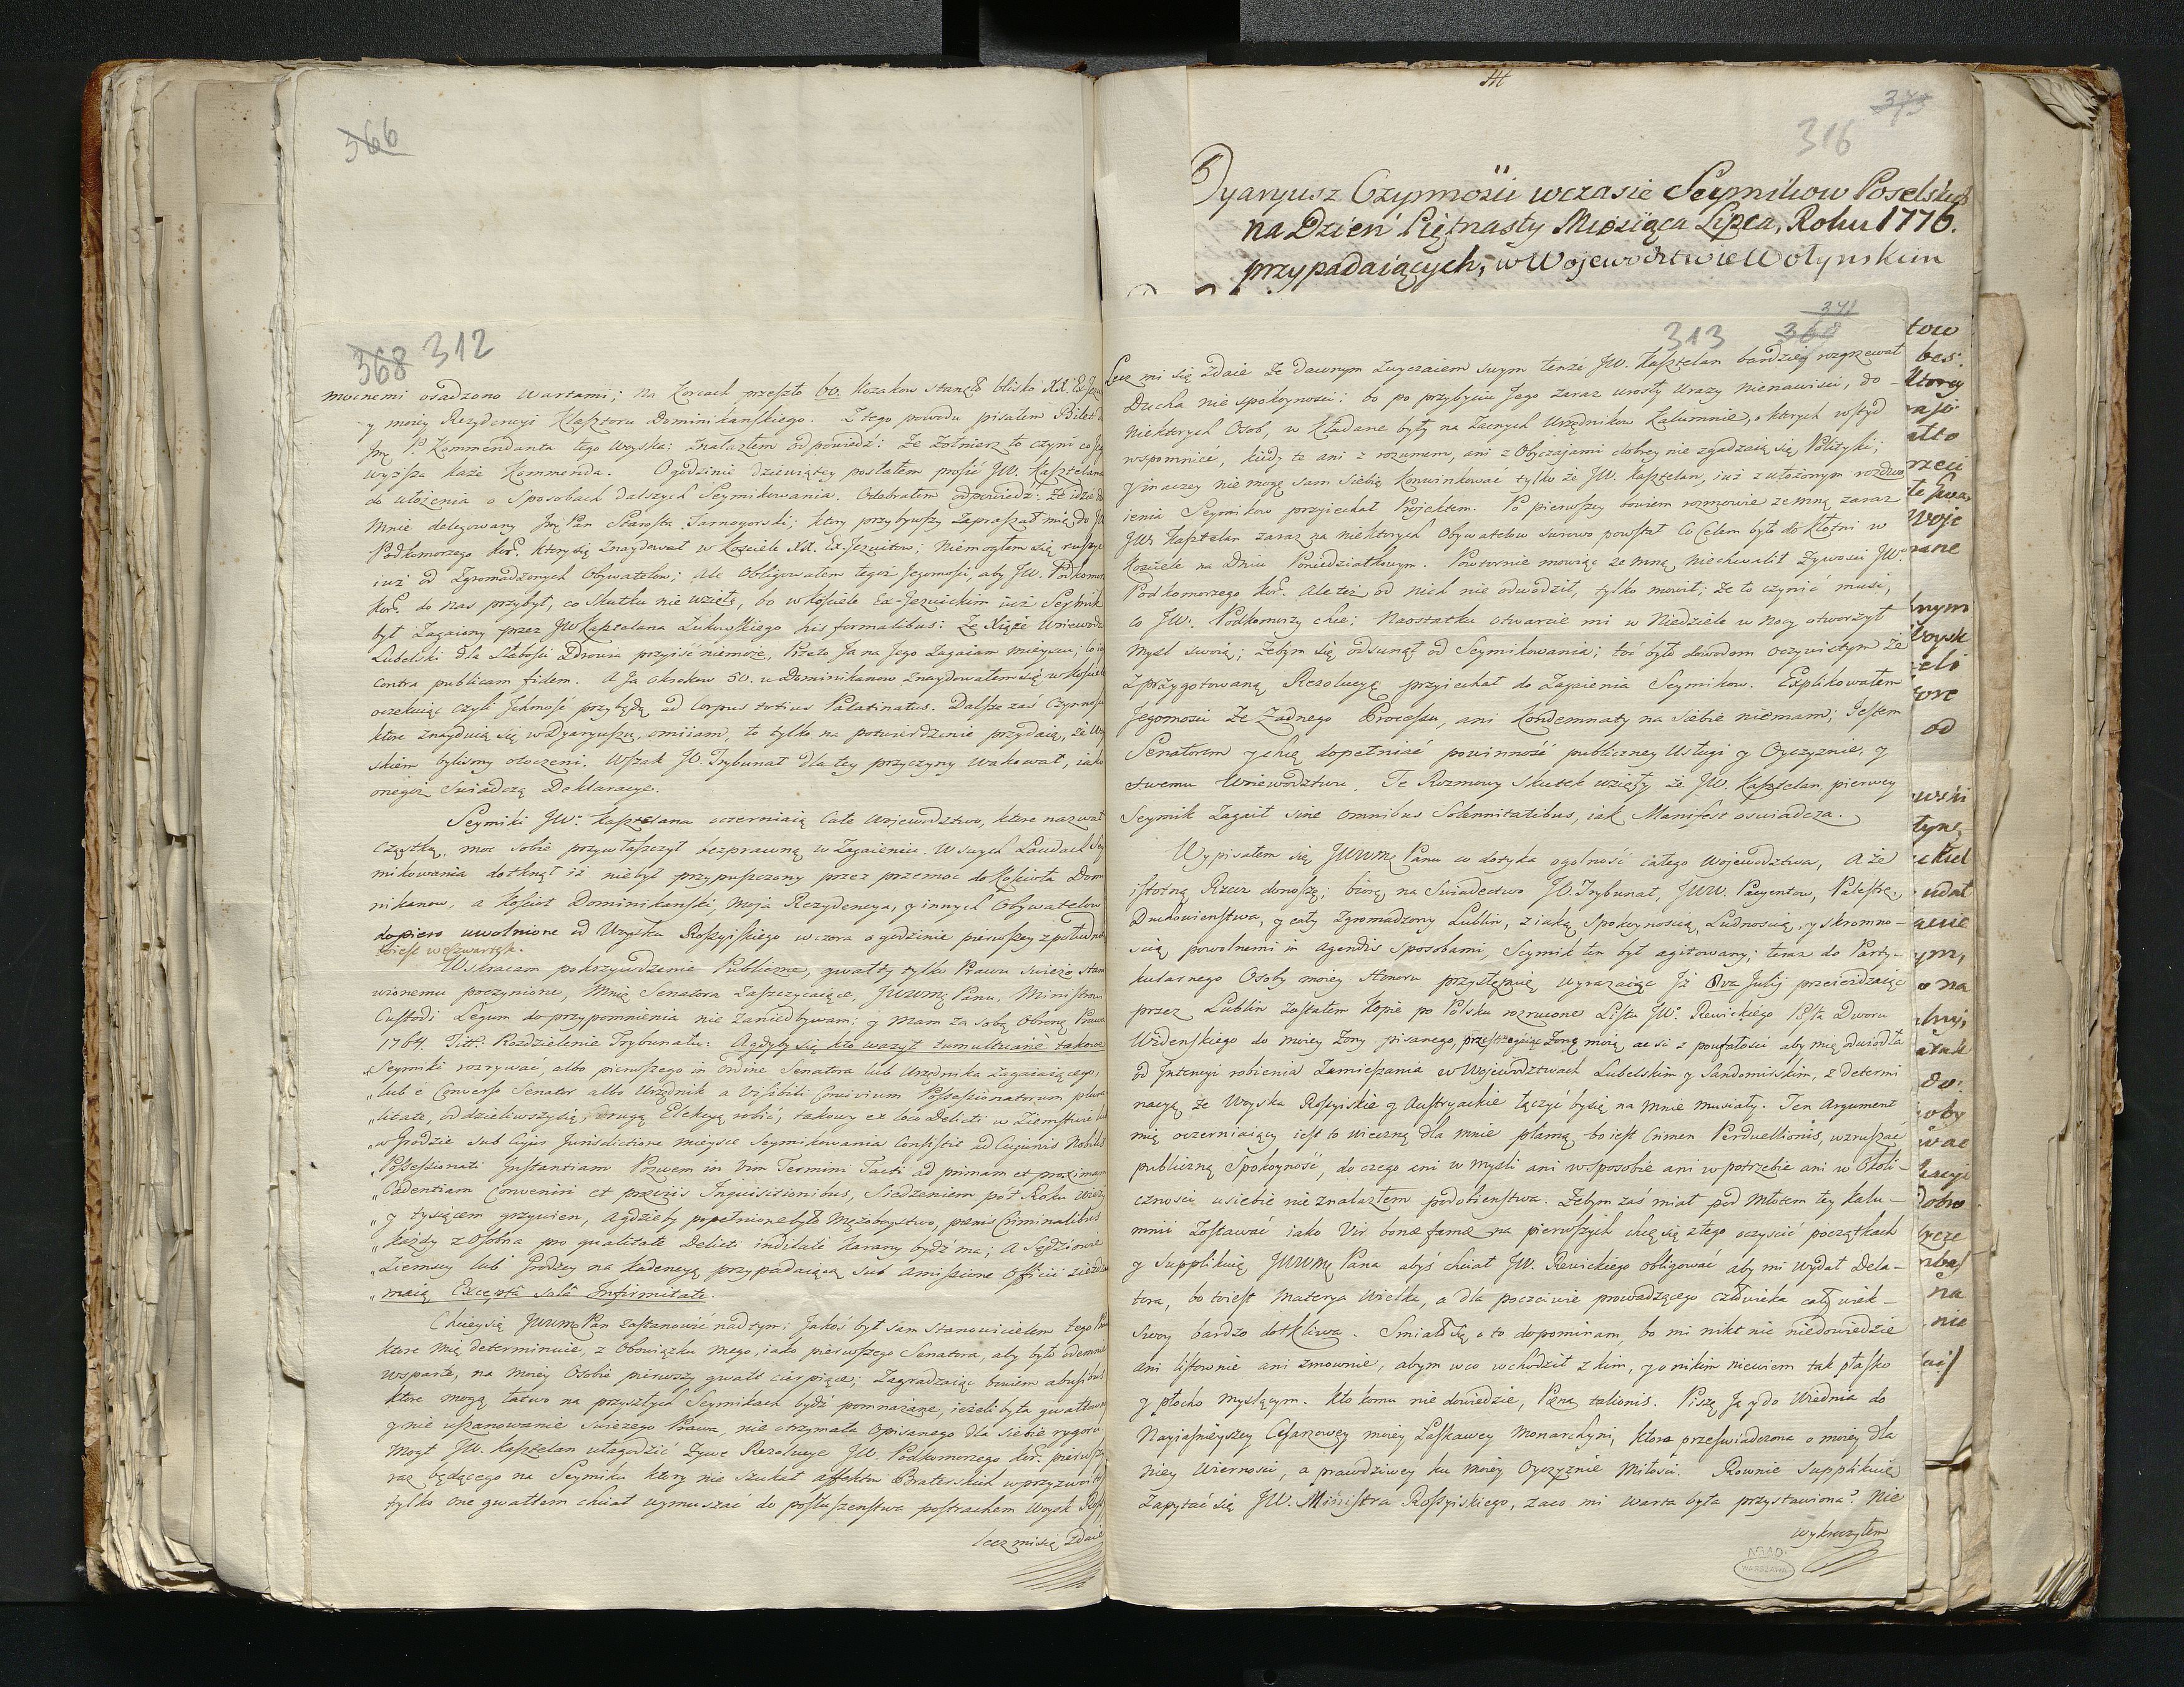 366
368 312
mocnemi osadzono Wartami; na Koniach przeszło 60. Kozakow stanęło blisko XX. Ex-Jezu
y moiey Rezydencyi Klasztoru Dominikańskiego. Z tego powodu pisałem Bilet d
Jmę P. Kommendanta tego Woyska: znalazłem odpowiedź: że żołnierz to czyni co Je
wyższa każe Kommenda. O godzinie dziewiątey posłałem prosić JW. Kasztelana
do ułożenia o sposobach dalszych Seymikowania. Odebrałem odpowiedź: że idzie do
mnie delegowany Jmę Pan Starosta Tarnogorski; ktory przybywszy zapraszał mię do J
Podkomorzego Kor. ktory się znaydował w Kościele XX. Ex-Jezuitow; niemogłem się ruszyć
iuż od Zgromadzonych Obywatelow; ale obligowałem tegoż Jegomości, aby JW. Podkomo
Kor. do nas przybył, co skutku nie wzięło, bo w kościele Ex-Jezuickim iuż Seymik
był Zagaiony przez JW Kasztelana Łukowskiego his formalibus: Że Xiąże Woiewoda
Lubelski dla Słabości Zdrowia przyiść niemoże, Przeto Ja na Jego Zagaiam mieyscu; to ie
contra publicam fidem. A Ja okrokow 50. u Dominikanow znaydowałem się w kościele
oczekuiąc czyli Ichmość przybędą ad Corpus totius Palatinatus. Dalsze zaś Czynnoś
ktore znayduią się w Dyaryuszu, omiiam, to tylko na potwierdzenie przydaię, że Wo
skiem byliśmy otoczeni. Wszak JO. Trybunał dla tey przyczyny wakował, iako
onegoż Świadczą Deklaracye.
Seymiki JW. Kasztelana oczerniaią Całe Woiewodztwo, ktore nazwał
Cząstką, moc sobie przywłaszczył bezprawną w Zagaieniu. W swych Laudach Sey
mikowania dotknął iż niebył przypuszczony przez przemoc do Kościoła Dom
nikanow, a Kościoł Dominikański, moja Rezydencya, y innych Obywatelow
dopiero uwolnione od Woyska Rossyiskiego wczora o godzinie pierwszey z południ
to iest w Czwartek.
Wskracam pokrzywdzenie Publiczne, gwałty tylko Prawu świeżo stan
wionemu poczynione, Mnię Senatora zaszczycaiące, JWWMę Panu, Ministrowi
Custodi Legum do przypomnienia nie zaniedbywam; y mam za sobą Obronę Prawa
1764. Titt. Rozdzielenie Trybunału: Agdyby się kto ważył tumultuarie takowe
„Seymiki rozrywać, albo pierwszego in ordine Senatora lub Urzędnika zagaiaiącego,
„lub è Converso Senator albo Urzędnik a visibili Concivium Possessionatorum plura
„litate, oddzieliwszy się, drugą Elekcyą robić, takowy ex loco Delicti w Ziemstwie lub
„w Grodzie sub Cujus Jurisdictione mieysce Seymikowania Consistit ad Cujusvis Nobilis
„Possessionati Instantiam Pozwem in Vim Termini Tacti ad primam et proximam
„Cadentiam Conveniri et praeviis Inquisitionibus, Siedzeniem poł Roku Wieży
„y tysiącem grzywien, agdzieby popełnione było Mężoboystwo, poenis Criminalibus
„każdy z Osobna pro qualitate Delicti inditaté karany bydź ma; A Sędziowie
„Ziemscy lub Grodzcy na Kadencyą przypadaiącą sub amissione Officii zieżdża
„maią Exceptâ solâ Infirmitate.
Chciey się JWWMę Pan zastanowić nad tym; Jakoś był sam stanowicielem tego Pra
ktore mię determinuie, z Obowiązku mego, iako pierwszego Senatora, aby było odemnie
wsparte, na moiey Osobie pierwszy gwałt cierpiące; Zagradzaiąc bowiem abusibus
ktore mogą łatwo na przyszłych Seymikach bydź pomnażane, ieżeliby ta gwałtowno
y nie uszanowanie świeżego Prawa, nie otrzymała opisanego dla siebie rygoru
Mogł JW. Kasztelan ułagodzić żywe Rezolucye JW. Podkomorzego Kor. pierwszy
raz będącego na Seymiku ktory nie szukał affektow Braterskich w przyzwoito
tylko one gwałtem chciał wymuszać do posłuszeństwa postrachem Woysk Ross
lecz mi się zdaie
316 373
Dyaryusz Czynności wczasie Seymikow Poselskich
na Dzień Piętnasty Miesiąca Lipca, Roku 1776.
przypadaiących, w Wojewodztwie Wołynskim
371
313 368
Lecz mi się zdaie że dawnym zwyczaiem swym tenże JW. Kasztelan bardziey rozgrzewał
Ducha niespokoyności; bo po przybyciu Jego zaraz urosły urazy nienawiści, do –
niektorych Osob, w kładane były na Zacnych Urzędnikow kalumnie, o ktorych wstyd
wspomnieć, kiedy te ani z rozumem, ani z Obyczajami dobrey nie zgadzaią się Polityki;
y inaczey nie mogę sam siebie konwinkować tylko że JW. Kasztelan, iuż z ułożonym rozdwo
ienia Seymikow przyiechał Projektem. Po pierwszey bowiem rozmowie ze mną zaraz
JW. Kasztelan zaraz na niektorych Obywatelow surowo powstał Co Celem było do kłotni w
Kościele na Dniu Poniedziałkowym. Powtornie mowiąc ze mną niechwalił żywości JW.
Podkomorzego Kor. Ale też od nich nie odwodził, tylko mowił; że to czynić musi,
co JW. Podkomorzy chce; Naostatku otwarcie mi w Niedziele w Nocy otworzył
Mysl swoią; żebym się odsunął od Seymikowania; toć było dowodem oczywistym że
z przygotowaną Rezolucyą przyiechał do Zagaienia Seymikow. Explikowałem
Jegomości że żadnego Processu, ani Kondemnaty na siebie niemam; Jestem
Senatorem y chcę dopełniać powinność publiczney Usługi y Oyczyznie, y
swemu Woiewodztwu. Te Rozmowy Skutek wzięły że JW. Kasztelan, pierwey
Seymik Zagaił sine omnibus Solennitatibus, iak Manifest oswiadcza.
Wypisałem się JWWMę Panu co dotyka ogolność całego Wojewodztwa, A że
istotną Rzecz donoszę; biorę na świadectwo JO. Trybunał, JWW. Pacyentow, Palestrę,
Duchowienstwa, y cały Zgromadzony Lublin, z iaką Spokoynością, Ludnością, y skromno-
scią powolnemi in agendis sposobami, Seymik ten był agitowany; teraz do Party-
kularnego Osoby moiey Honoru przystępuię wyrażaiąc Iż 8va Julij przeieżdżaiąc
przez Lublin zostałem Kopie po Polsku rozrucone Listu JW. Rewickiego Posła Dworu
Wiedenskiego do moiey Żony pisanego, przestrzegaiąc Żonę moią, ac si z poufałości aby mię odwiodła
od Intencyi robienia Zamieszania w Wojewodztwach Lubelskim y Sandomirskim, z determi
nacyą że Woyska Rossyiskie y Austryackie łączyć by się na mnie musiały. Ten Argument
mię oczerniaiący iest to wieczną dla mnie plamą, bo iest Crimen Perduellionis, wzruszać
publiczną Spokoyność, do czego ani w mysli ani wsposobie ani w potrzebie ani w Okoli-
czności u siebie nie znalazłem podobieństwa. Żebym zaś miał pod Młotem tey kalu-
mnii zostawać iako Vir bonae famae na pierwszych chcę się z tego oczyścić początkach
y Supplikuię JWWMę Pana abyś chciał JW. Rewickiego obligować aby mi wydał Dela-
tora, bo to iest Materya Wielka, a dla poczciwie prowadzącego człowieka cały wiek-
swoy bardzo dotkliwa. Smiało się o to dopominam, bo mi nikt nic niedowiedzie
ani listownie ani zmownie, abym w co wchodził z kim, y o nikim niewiem tak płasko
y płocho myślącym. Kto komu nie dowiedzie, Poena talionis. Piszę Ja y do Wiednia do
Nayiaśnieyszey Cesarzowey moiey Łaskawey Monarchyni, ktora przeświadczona o moiey dla
niey Wierności, a prawdziwey ku moiey Oyczyznie Miłości. Rownie supplikuię
Zapytać się JW. Ministra Rossyiskiego, za co mi warta była przystawiona? Nie
wykroczyłem
AGAD
WARSZAWA